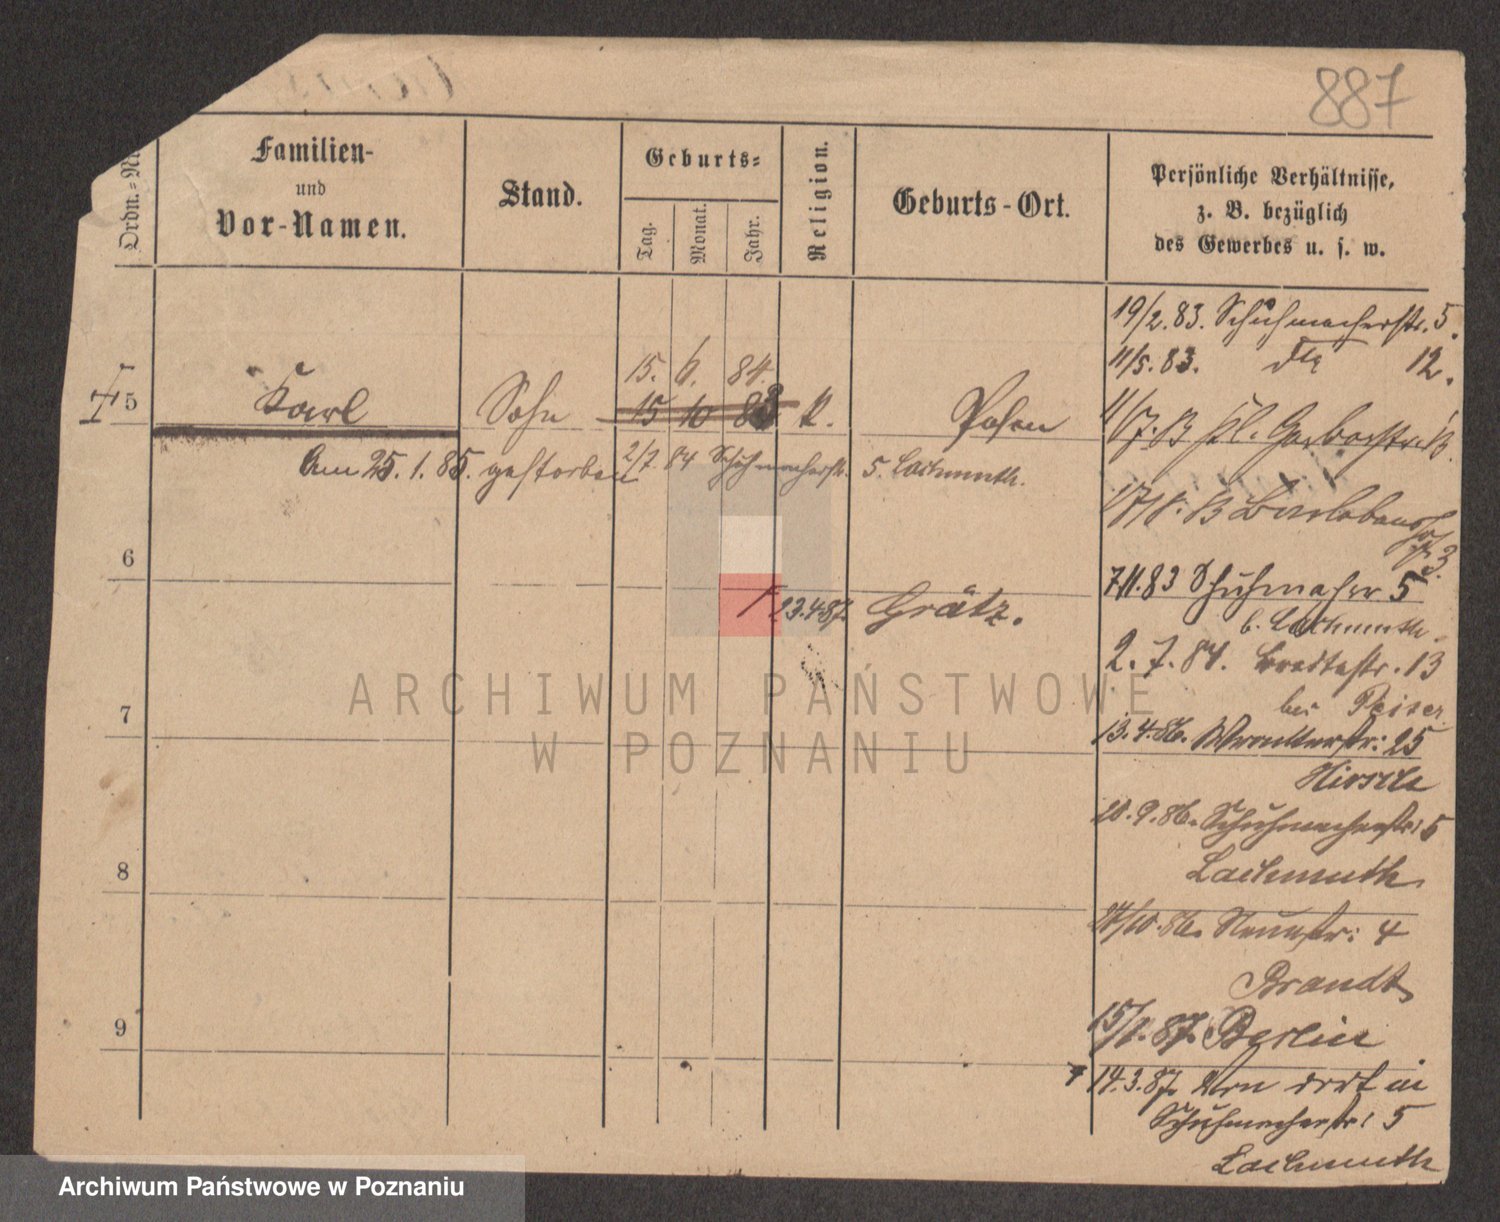 887
Ordn.-Nr.
Familien-
und
Vor-Namen.
Stand.
Geburts-
Tag.
Monat.
Jahr.
Religion.
Geburts-Ort.
Persönliche Verhältnisse,
z. B. bezüglich
des Gewerbes u. s. w.
19/2. 83. Schuhmacherstr. 5.
11/5. 83. 12.
15. 6. 84.
5 Karl Sohn 15 10 83 k. Posen
11/7. 83 kl. Gerberstr. 13.
Am 25. 1. 85. gestorben
2/7 84 Schuhmacherstr. 5. Lachmuth.
3.
6
7/11. 83 Schuhmacher 5
b. Lachmuth.
23.4.87. Grätz.
2. 7. 84. Breitestr. 13
bei Peiser
7
13. 4. 86. 25
Hirsch
20. 9. 86. Schuhmacherstr: 5
8
Lachmuth
/10. 86. Neuestr: 4
Brandt
9
15/1. 87. Berlin
14. 3. 87. Von dort in
Schuhmacherstr: 5
Lachmuth
ARCHIWUM PAŃSTWOWE
W POZNANIU
Archiwum Państwowe w Poznaniu